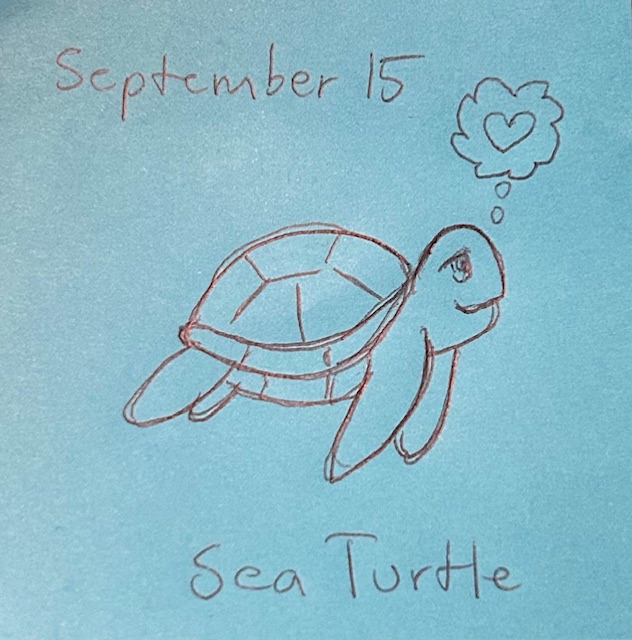 September 15
Sea Turtle